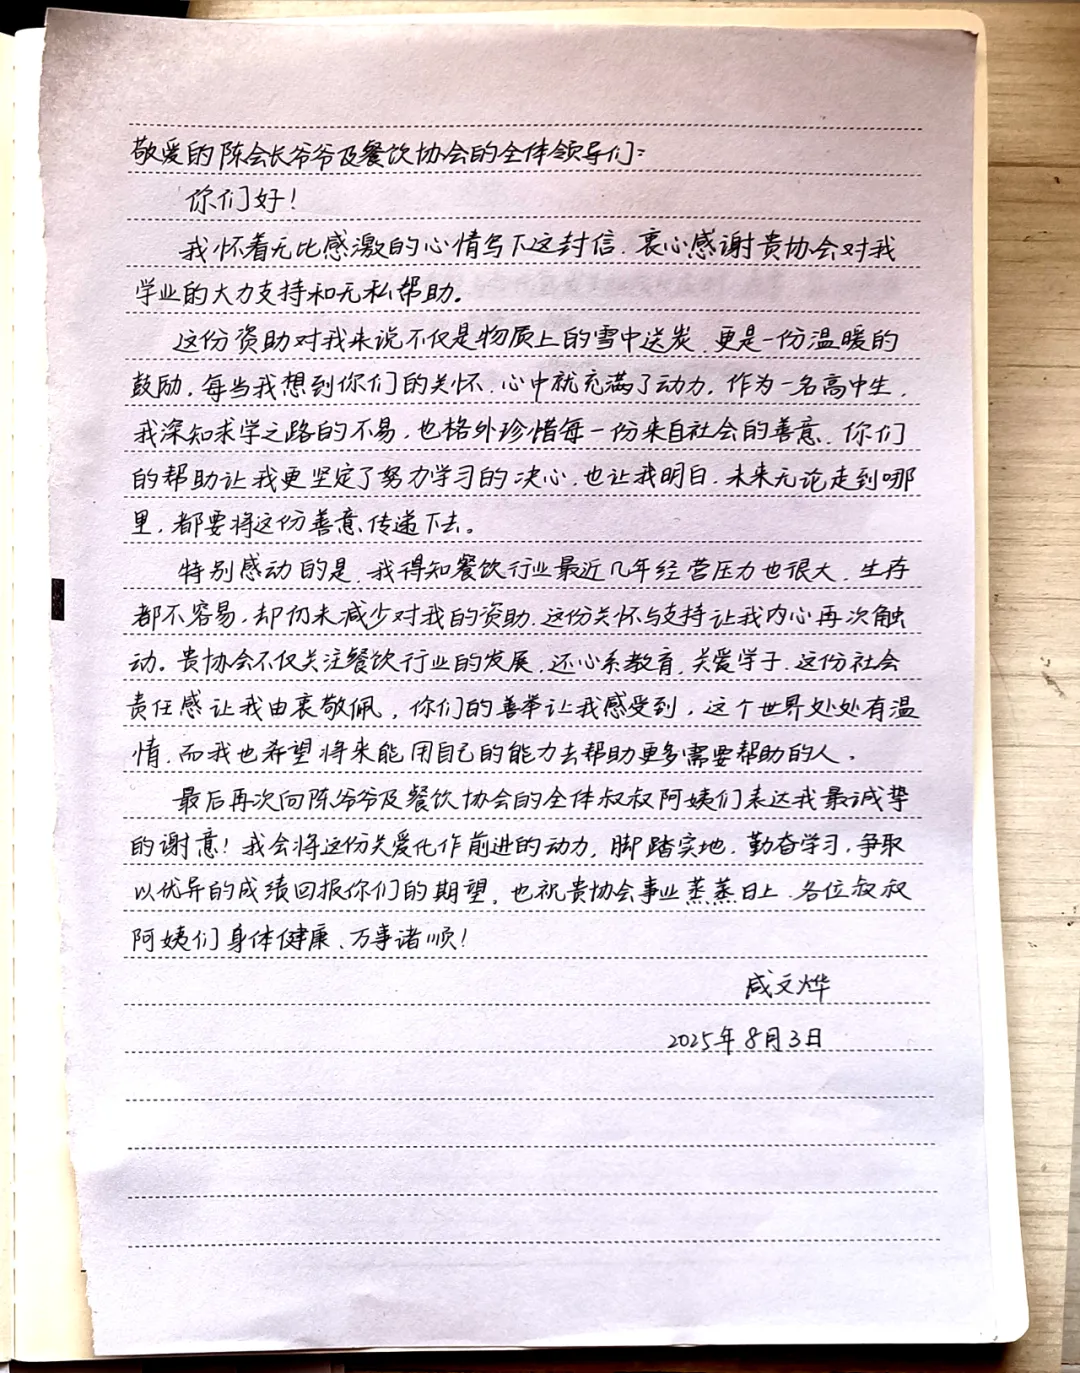 敬爱的陈会长爷爷及餐饮协会的全体领导们：
你们好！
我怀着无比感激的心情写下这封信，衷心感谢贵协会对我
学业的大力支持和无私帮助。
这份资助对我来说不仅是物质上的雪中送炭，更是一份温暖的
鼓励，每当我想到你们的关怀，心中就充满了动力，作为一名高中生，
我深知求学之路的不易，也格外珍惜每一份来自社会的善意，你们
的帮助让我更坚定了努力学习的决心，也让我明白，未来无论走到哪
里，都要将这份善意传递下去。
特别感动的是，我得知餐饮行业最近几年经营压力也很大，生存
都不容易，却仍未减少对我的资助，这份关怀与支持让我内心再次触
动。贵协会不仅关注餐饮行业的发展，还心系教育，关爱学子，这份社会
责任感让我由衷敬佩，你们的善举让我感受到，这个世界处处有温
情，而我也希望将来能用自己的能力去帮助更多需要帮助的人。
最后再次向陈爷爷及餐饮协会的全体叔叔阿姨们表达我最诚挚
的谢意！我会将这份关爱化作前进的动力，脚踏实地，勤奋学习，争取
以优异的成绩回报你们的期望，也祝贵协会事业蒸蒸日上，各位叔叔
阿姨们身体健康、万事诸顺！
咸文烨
2025年8月3日